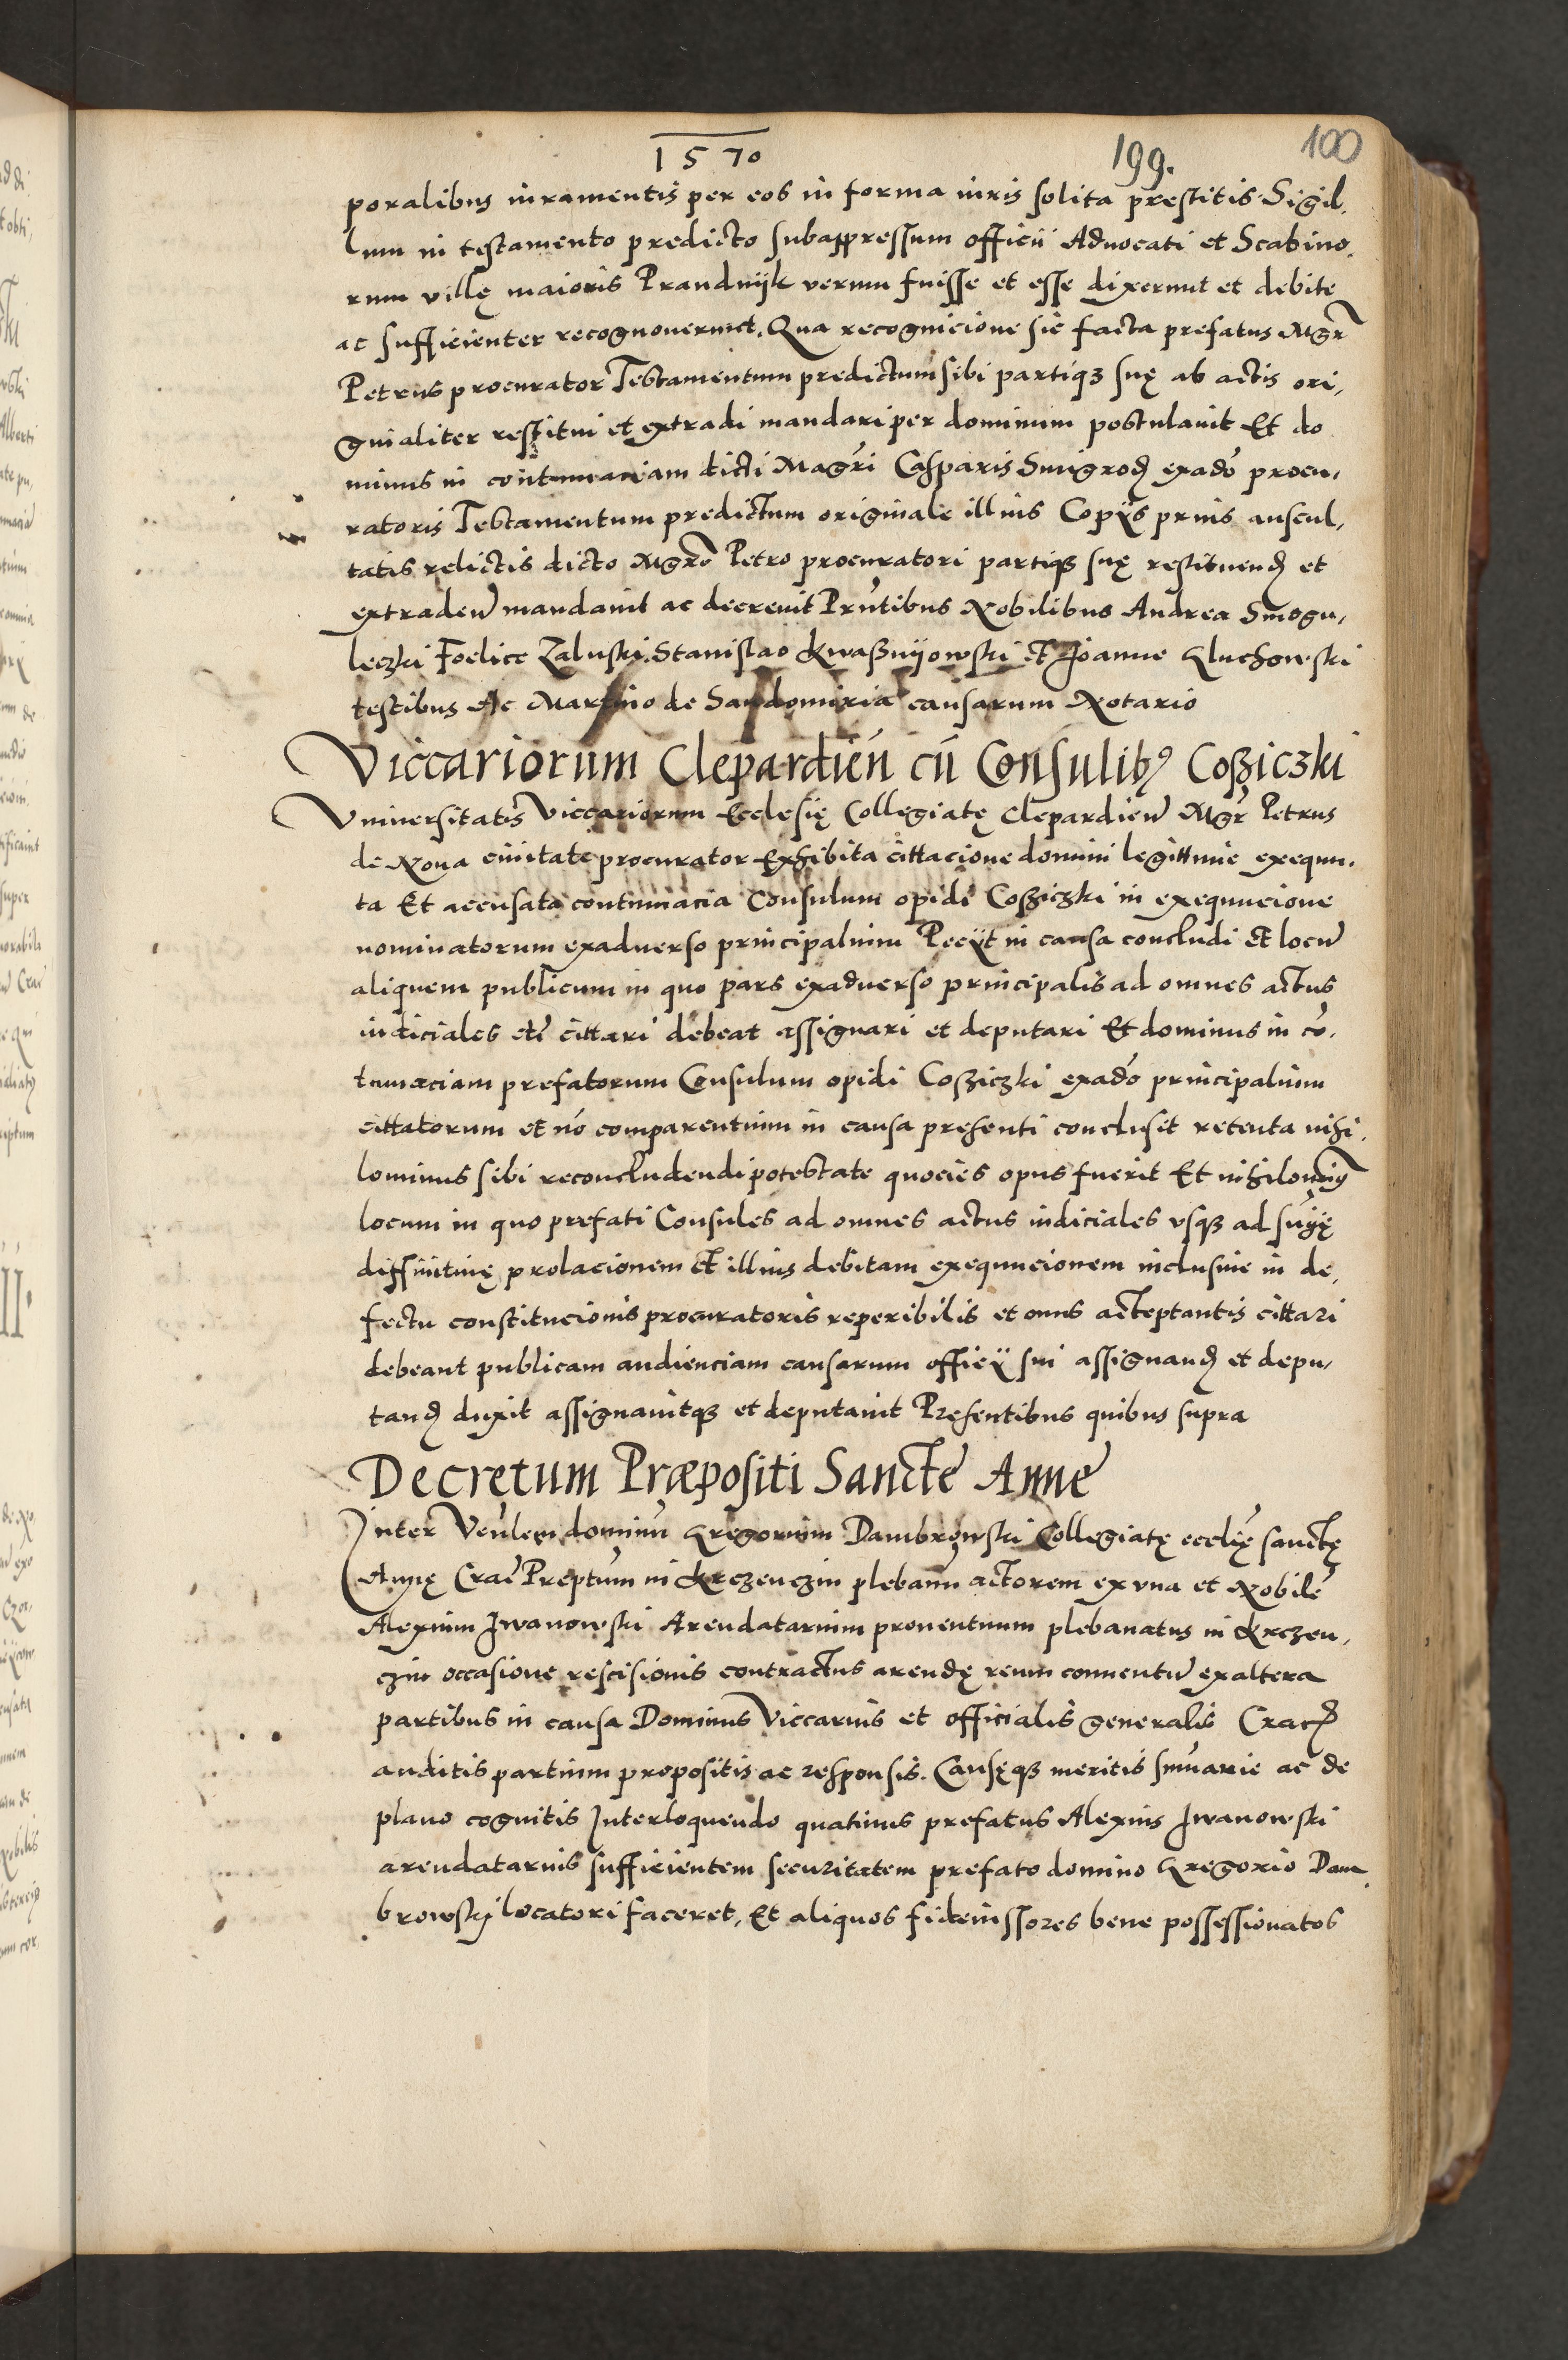 1570
199.
100
poralibus iuramentis per eos in forma iuris solita prestitis. Sigil,
lum in testamento predicto subappressum officii Aduocati et Scabino,
rum villę maioris Prandnijk verum fuisse et esse dixerunt et debite
ac sufficienter recognouerunt. Qua recognicione sic facta prefatus Mgr̃
Petrus procurator Testamentum predictum sibi partiqʒ suę ab actis ori,
ginaliter restitui et extradi mandari per dominum postulauit Et do
minus in contumaciam dicti Magr̃i Casparis Smigrod exad̃o procu,
ratoris Testamentum predictum originale illius Copijs prius auscul,
tatis relictis dicto Mgr̃o Petro procuratori partiqʒ suę restituend et
extraden̄ mandauit ac decreuit Prñtibus Nobilibus Andrea Smogu,
leczki Foelice Zaluski Stanislao Kwaßnijowski et Joanne Gluchowski
testibus Ac Martino de Sandomiria causarum Notario
Viccariorum Clepardień cū Consulibꝰ Coßiczki
Vniuersitatis Viccariorum Ecclesię Collegiatę Clepardień Mgr̃ Petrus
de Noua ciuitate procurator Exhibita cittacione domini legittime exequu,
ta Et accusata contumacia Consulum opidi Coßiczki in exequucione
nominatorum exaduerso principalium Pecijt in causa concludi Et locū
aliquem publicum in quo pars exaduerso principalis ad omnes actus
iudiciales etc̃ cittari debeat assignari et deputari Et dominus in cõ,
tumaciam prefatorum Consulum opidi Coßiczki exad̃o principalium
cittatorum et nõ comparentium in causa presenti conclusit retenta nihi,
lominus sibi reconcludendi potestate quocies opus fuerit Et nihilominꝰ
locum in quo prefati Consules ad omnes actus iudiciales vsqʒ ad sn̄ię
diffinitiuę prolacionem et illius debitam exequucionem inclusiue in de,
fectu constitucionis procuratoris reperibilis et onus acceptantis cittari
debeant publicam audienciam causarum officij sui assignand et depu,
tand duxit assignauitqʒ et deputauit Presentibus quibus supra
Decretum Præpositi Sancte Anne
Inter Ven̄lem dominū Gregorium Dambrowski Collegiatę eccl̃ię sanctę
Annę Crac̃ Preptum in Krczenczin plebanū actorem ex vna et Nobilē
Alexium Iwanowski Arendatarium prouentuum plebanatus in Krczen,
czin occasione rescisionis contractus arendę reum conuentū exaltera
partibus in causa Dominus Viccarius et officialis generalis Crac
auditis partium propositis ac responsis. Causęqʒ meritis sum̄arie ac de
plano cognitis Interloquendo quatinus prefatus Alexius Iwanowski
arendatarius sufficientem securitatem prefato domino Gregorio Dam,
browskj locatori faceret, Et aliquos fideiussores bene possessionatos